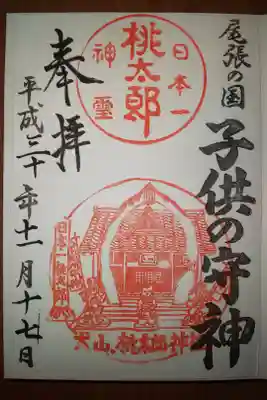 尾張の国
子供の守神
日本一
桃太郎
神霊
奉拝
平成三十年十一月十七日
日本一桃太郎
犬山、桃太郎神社